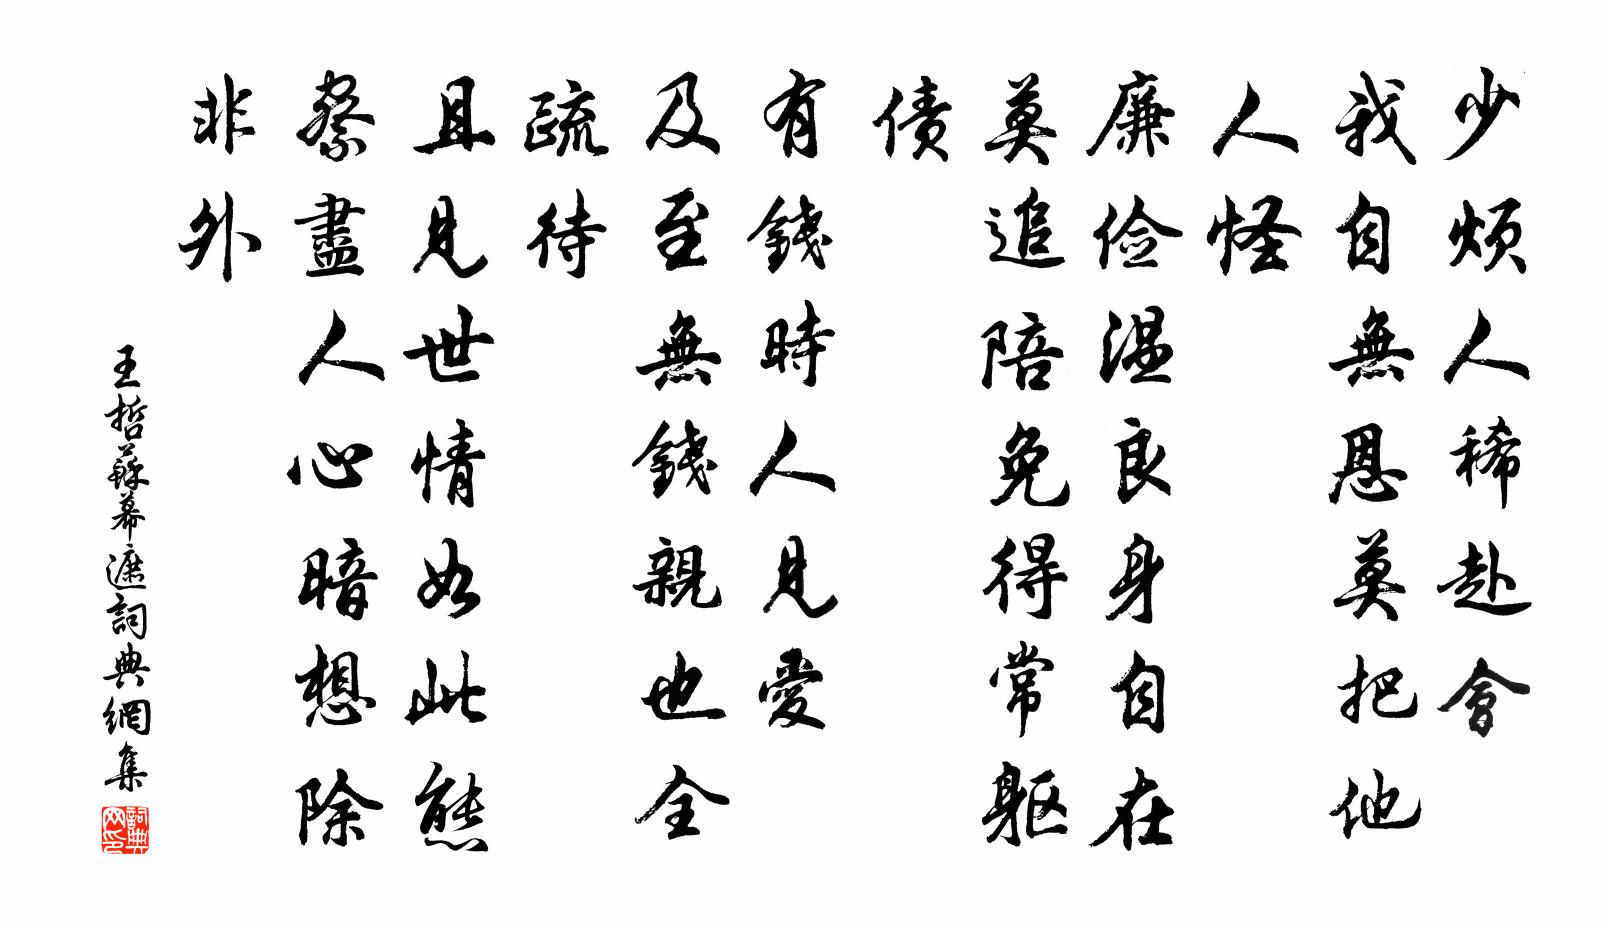 少煩人稀赴會
我自無恩莫把他
人怪
廉儉溫良身自在
莫追陪免得常軀
債
有錢時人見愛
及至無錢親也全
疏待
且見世情如此態
察盡人心暗想除
非外
王哲蘇幕遮詞典網集
詞典网印